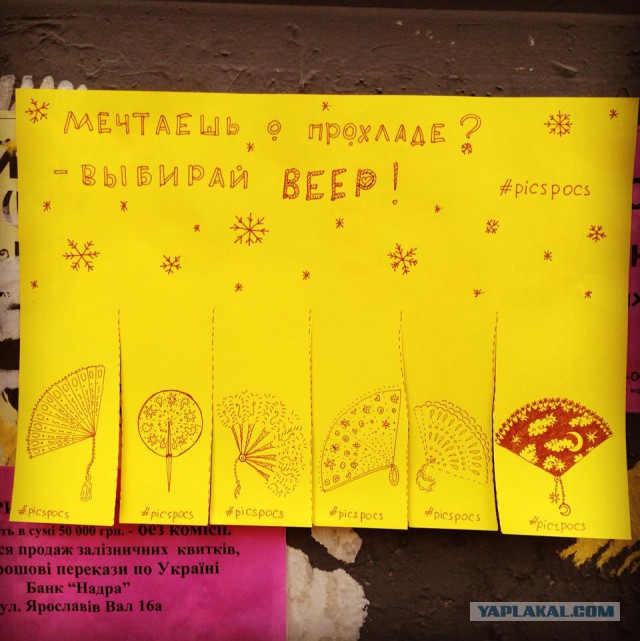 МЕЧТАЕШЬ О ПРОХЛАДЕ?
- ВЫБИРАЙ ВЕЕР!
#picspocs
#picspocs
#picspocs
#picspocs
#picspocs
#picspocs
#picspocs
ть в сумі 50 000 грн. - без комісії.
ся продаж залізничних квитків,
рошові перекази по Україні
Банк “Надра”
ул. Ярославів Вал 16а
YAPLAKAL.COM